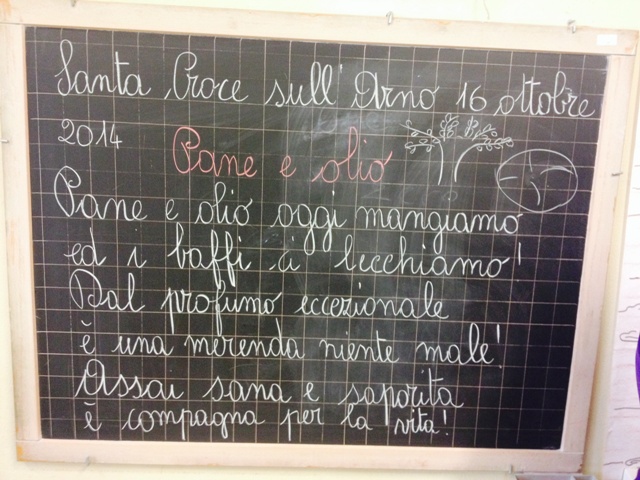 Santa Croce sull'Arno 16 ottobre
2014
Pane e olio
Pane e olio oggi mangiamo
ed i baffi ci lecchiamo!
Dal profumo eccezionale
è una merenda niente male!
Assai sana e saporita
è compagna per la vita!